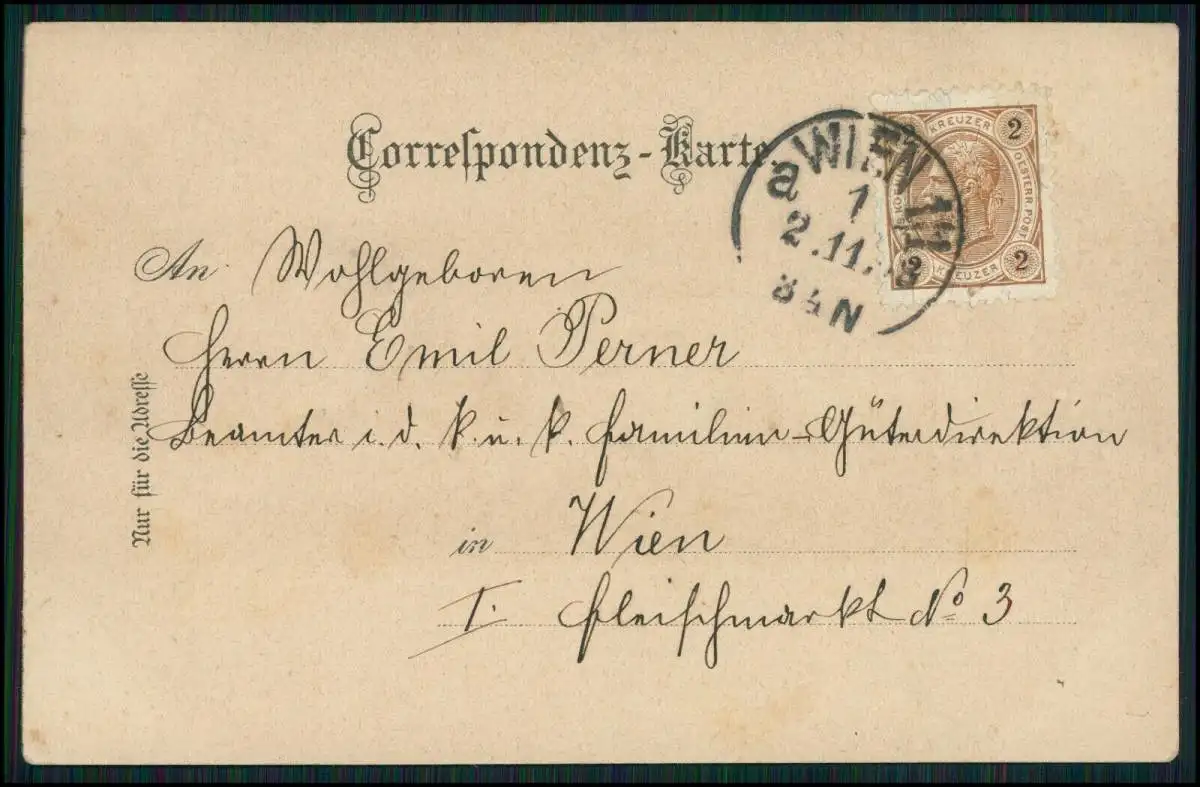 Correſpondenz-Karte.
a WIEN 1/1
1
2.11.98
8½N
KREUZER
2
OESTERR. POST
2
2
KREUZER
An Wohlgeboren
Herrn Emil Perner
Beamter i. d. k. u. k. Familien-Güterdirektion
in Wien
I. Fleischmarkt No 3
Nur für die Adreſſe